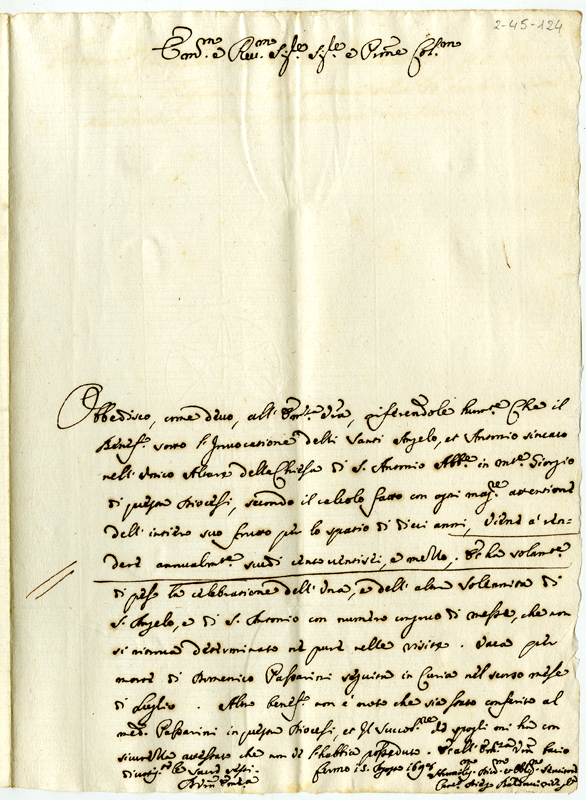 2-45-124
Em.mo e Rev.mo Sig.re Sig.re e Prone Col.mo
Obbedisco, come devo, all' Em.za V'ra, riferendole hum.te che il
Benef.o sotto l'Invocatione delli Santi Angelo, et Antonio
nell' Unico Altare della Chiesa di S. Antonio Abb.e in m.te Giorgio
di questa Diocesi, secondo il calcolo fatto con ogni mag.re attentione
dell' intiero suo frutto per lo spatio di dieci anni, viene à ren=
dere annualm.te scudi cento ventisei, e mezzo. Et ha solam.te
di peso la celebratione dell' Una, e dell' altra Solennità di
S. Angelo, e di S. Antonio con numero congruo di messe, che non
si ritrova determinato nè pure nelle visite. Vaca per
morte di Domenico Passarini seguita in Curia nel scorso mese
di Luglio. Altro benef.o non è noto che sia stato conferito al
med.o Passarini in questa Diocesi, et Il Succoll.re de spogli mi ha con
sicurezza attestato che non ve l'habbia posseduto. Et all' Em.za V'ra bacio
Fermo 15 Agosto 1698